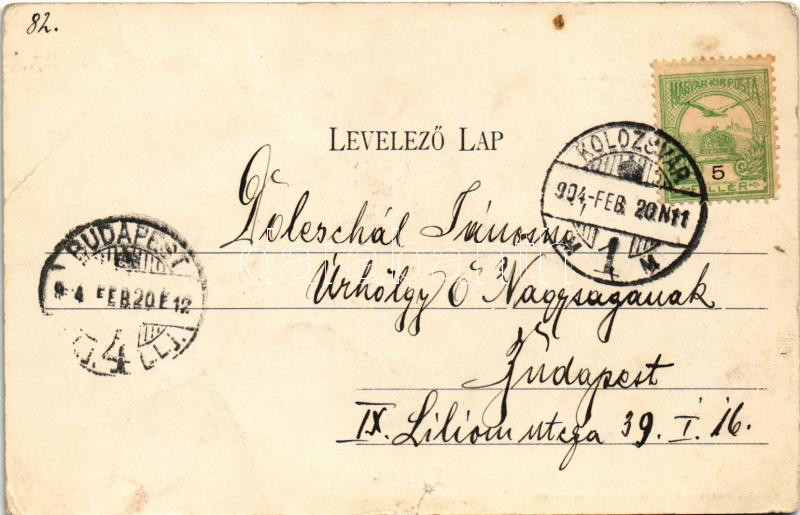 82.
MAGYAR KIR. POSTA
5
FILLÉR
LEVELEZŐ LAP
KOLOZSVÁR
904-FEB. 20.N11
M 1 M
BUDAPEST
9 4 FEB 20 E 12
4
Doleschál Jánosné
Úrhölgy Ő Nagyságának
Budapest
IX. Liliom utcza 39. I. 16.